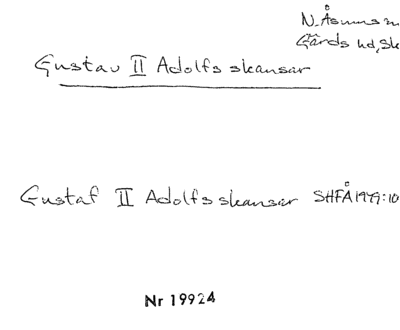 N. Åsums
Gärds hd, Sk
Gustav II Adolfs skansar
Gustaf II Adolfs skansar SHFÅ 1949:10
Nr 19924